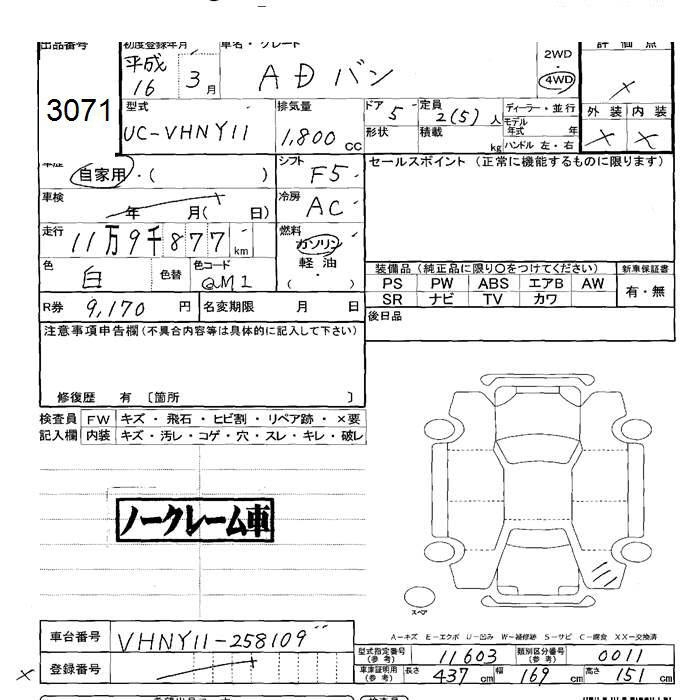 出品番号 初度登録年月 車名・グレード 評価点
平成 16 3月 ADバン 2WD 4WD ×
3071
型式 排気量 ドア 5 定員 2(5)人 ディーラー・並行 外装 内装
UC-VHNY11 1,800cc 形状 積載 kg モデル年式 年 × ×
ハンドル 左・右
車歴 自家用・( ) シフト F5 セールスポイント(正常に機能するものに限ります)
車検 年 月( 日) 冷房 AC
走行 11万9千877km 燃料 ガソリン 軽油 ( ・ )
色 白 色替 色コード QM1 装備品(純正品に限り○をつけてください) 新車保証書
PS PW ABS エアB AW 有・無
SR ナビ TV カワ
R券 9,170円 名変期限 月 日 後日品
注意事項申告欄(不具合内容等は具体的に記入して下さい)
修復歴 有 〔箇所 〕
検査員 FW キズ・飛石・ヒビ割・リペア跡・×要
記入欄 内装 キズ・汚レ・コゲ・穴・スレ・キレ・破レ
ノークレーム車
スペア
A－キズ E－エクボ U－凹み W－補修跡 S－サビ C－腐食 XX－交換済
車台番号 VHNY11-258109
型式指定番号(参考) 11603 類別区分番号(参考) 0011
登録番号
車庫証明用(参考) 長さ 437cm 幅 169cm 高さ 151cm
×